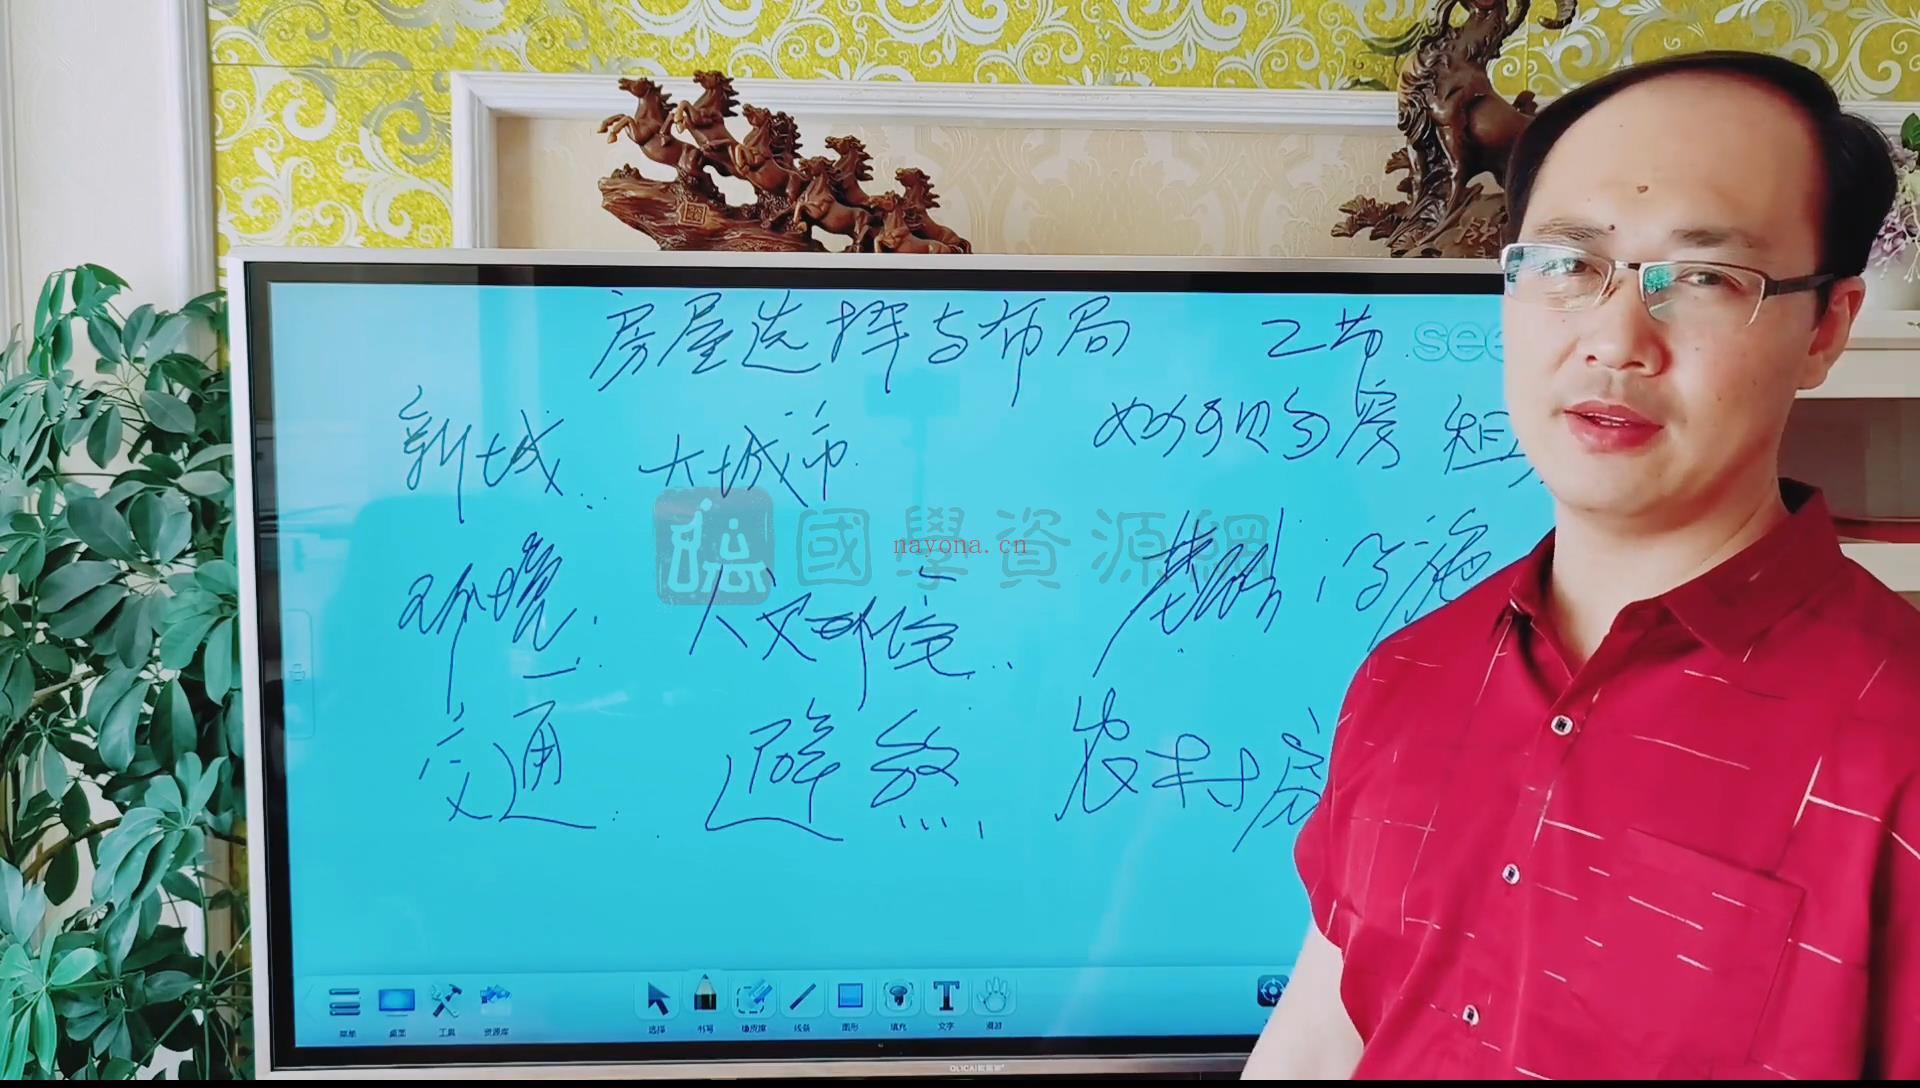 房屋选择与布局 2节 see
新城 大城市 如何购房 租
國學資源網
nayona.cn
环境 人文环境 基础设施
交通 避煞 农村房
菜单 桌面 工具 资源库 选择 书写 橡皮擦 线条 图形 填充 文字 漫游